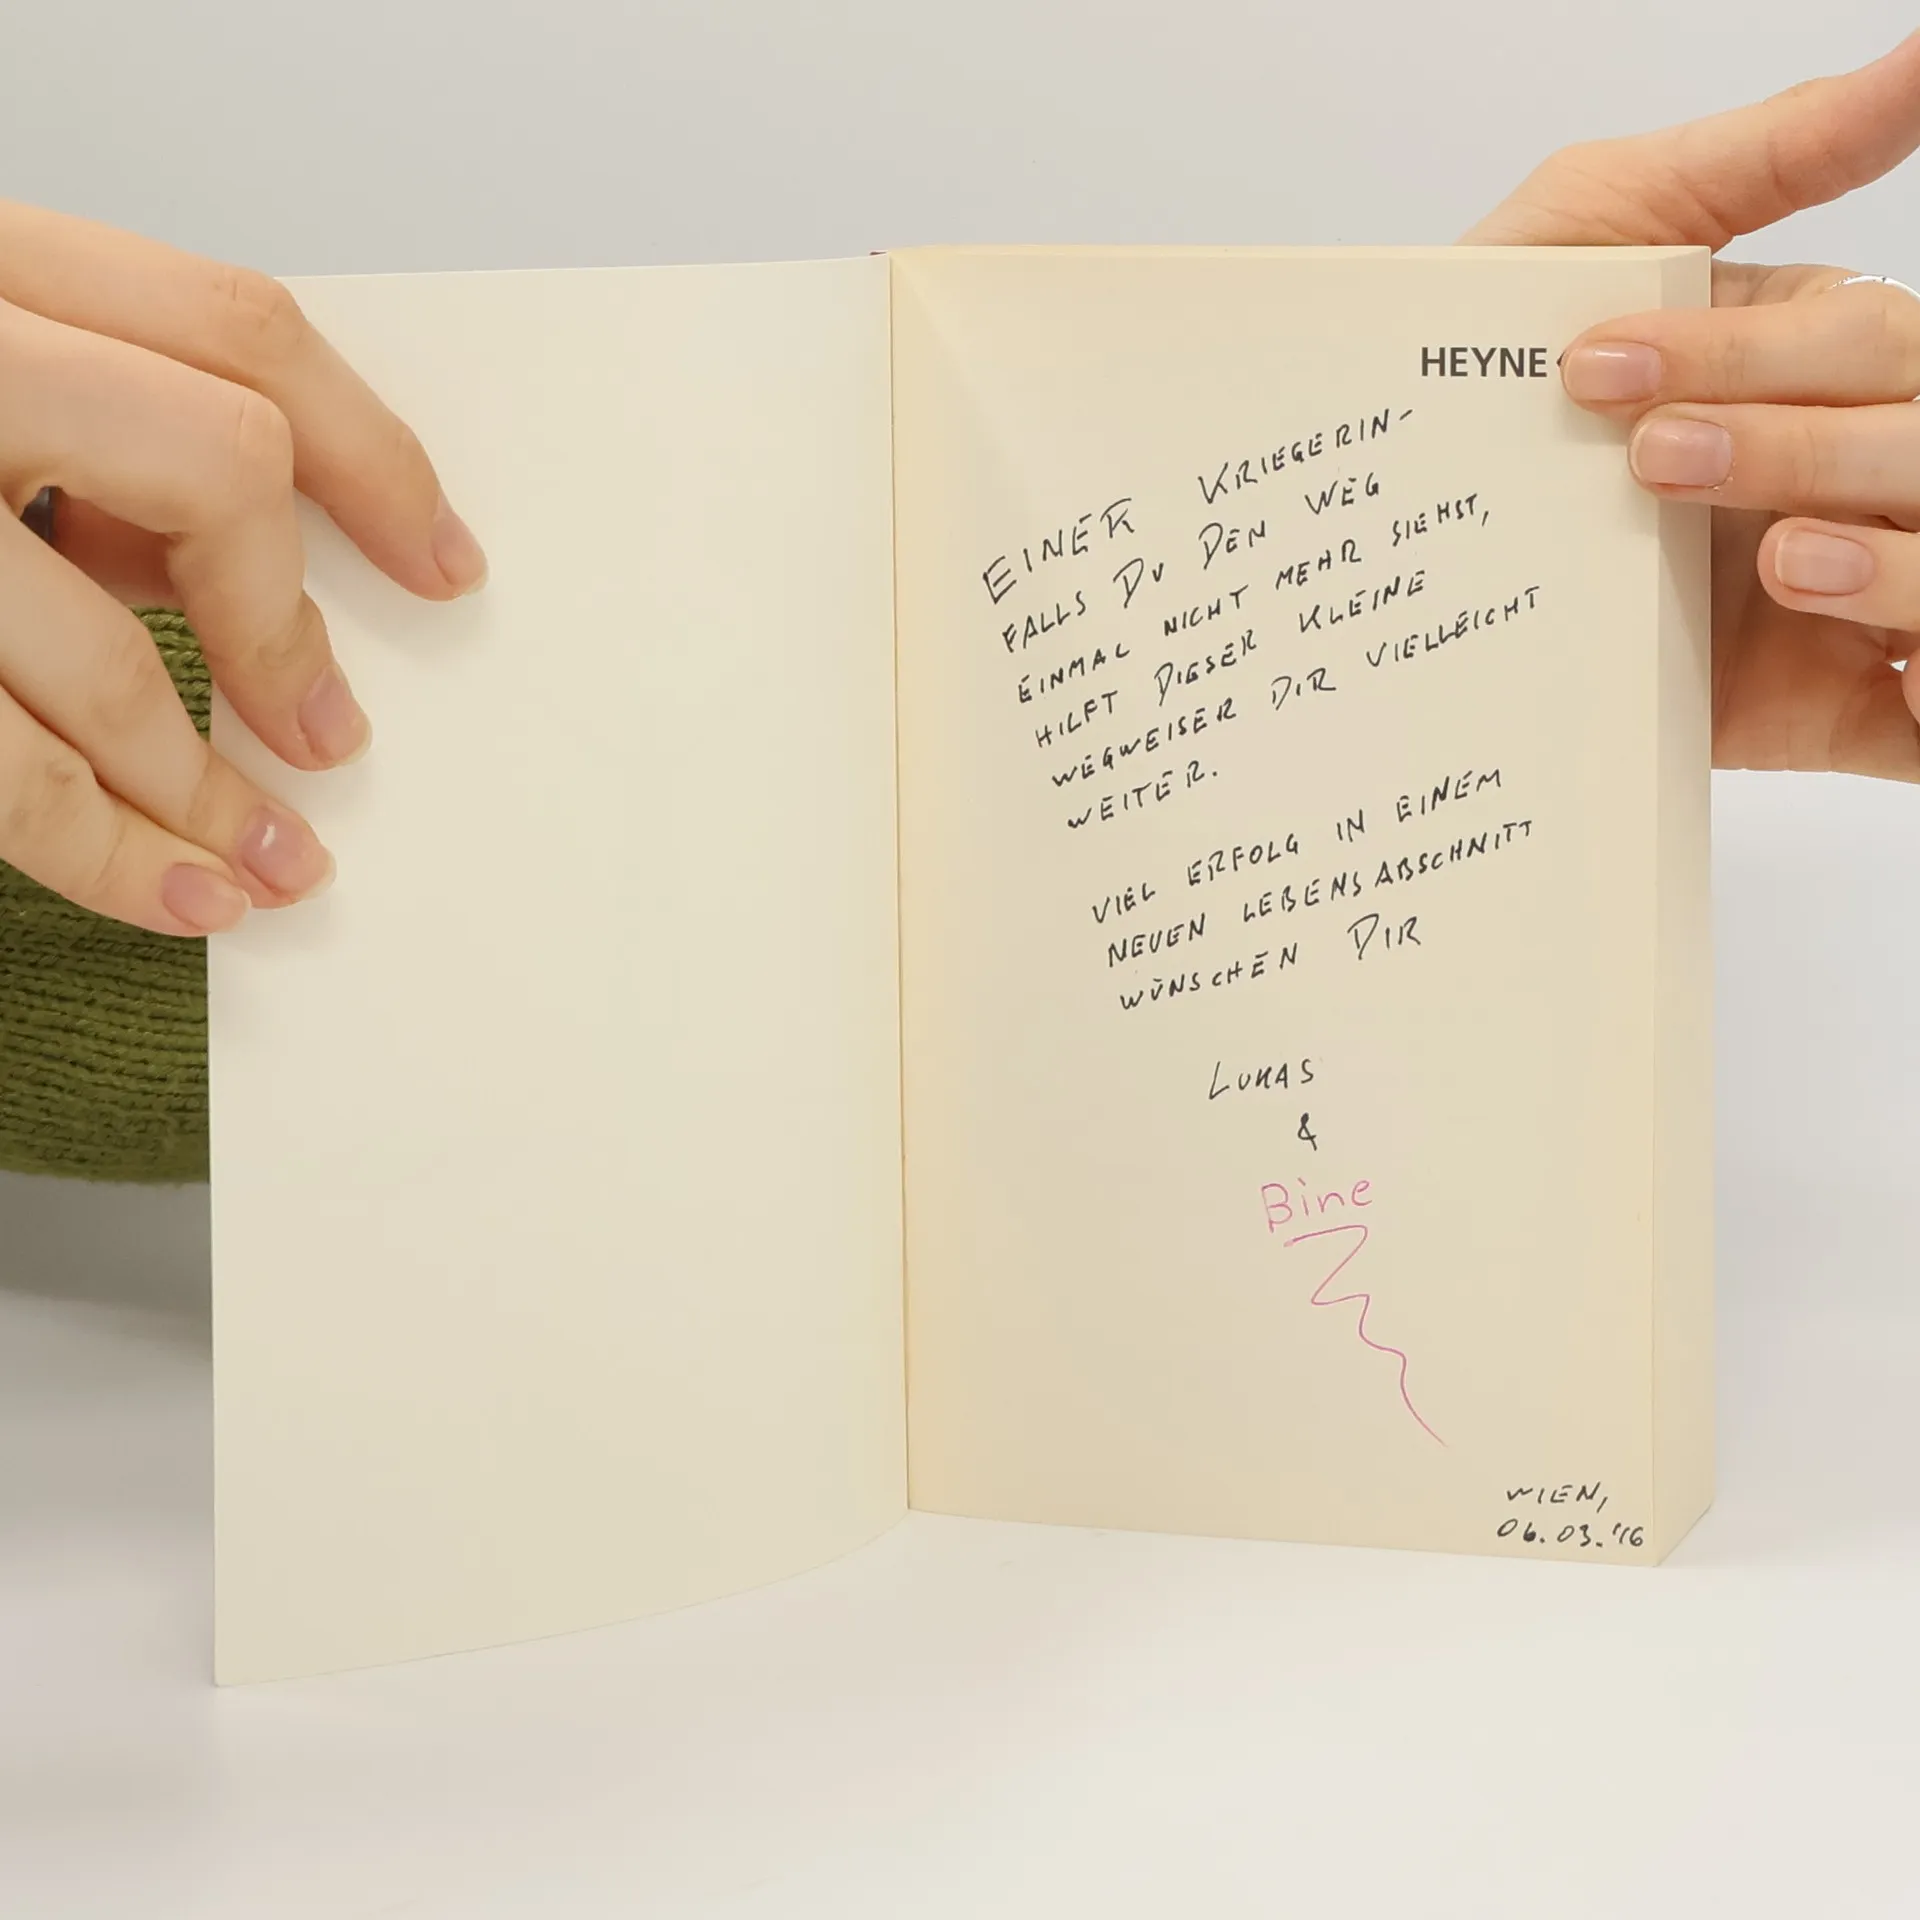 HEYNE
EINER KRIEGERIN-
FALLS DU DEN WEG
EINMAL NICHT MEHR SIEHST,
HILFT DIESER KLEINE
WEGWEISER DIR VIELLEICHT
WEITER.
VIEL ERFOLG IN EINEM
NEUEN LEBENSABSCHNITT
WÜNSCHEN DIR
LUKAS
&
Bine
WIEN,
06.03.'16